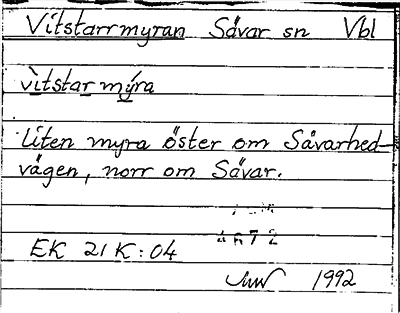 Vitstarrmyran Sävar sn Vbl
vìtstar mýra
Liten myra öster om Sävarhed-
vägen, norr om Sävar.
4672
EK 21 K:04
1992